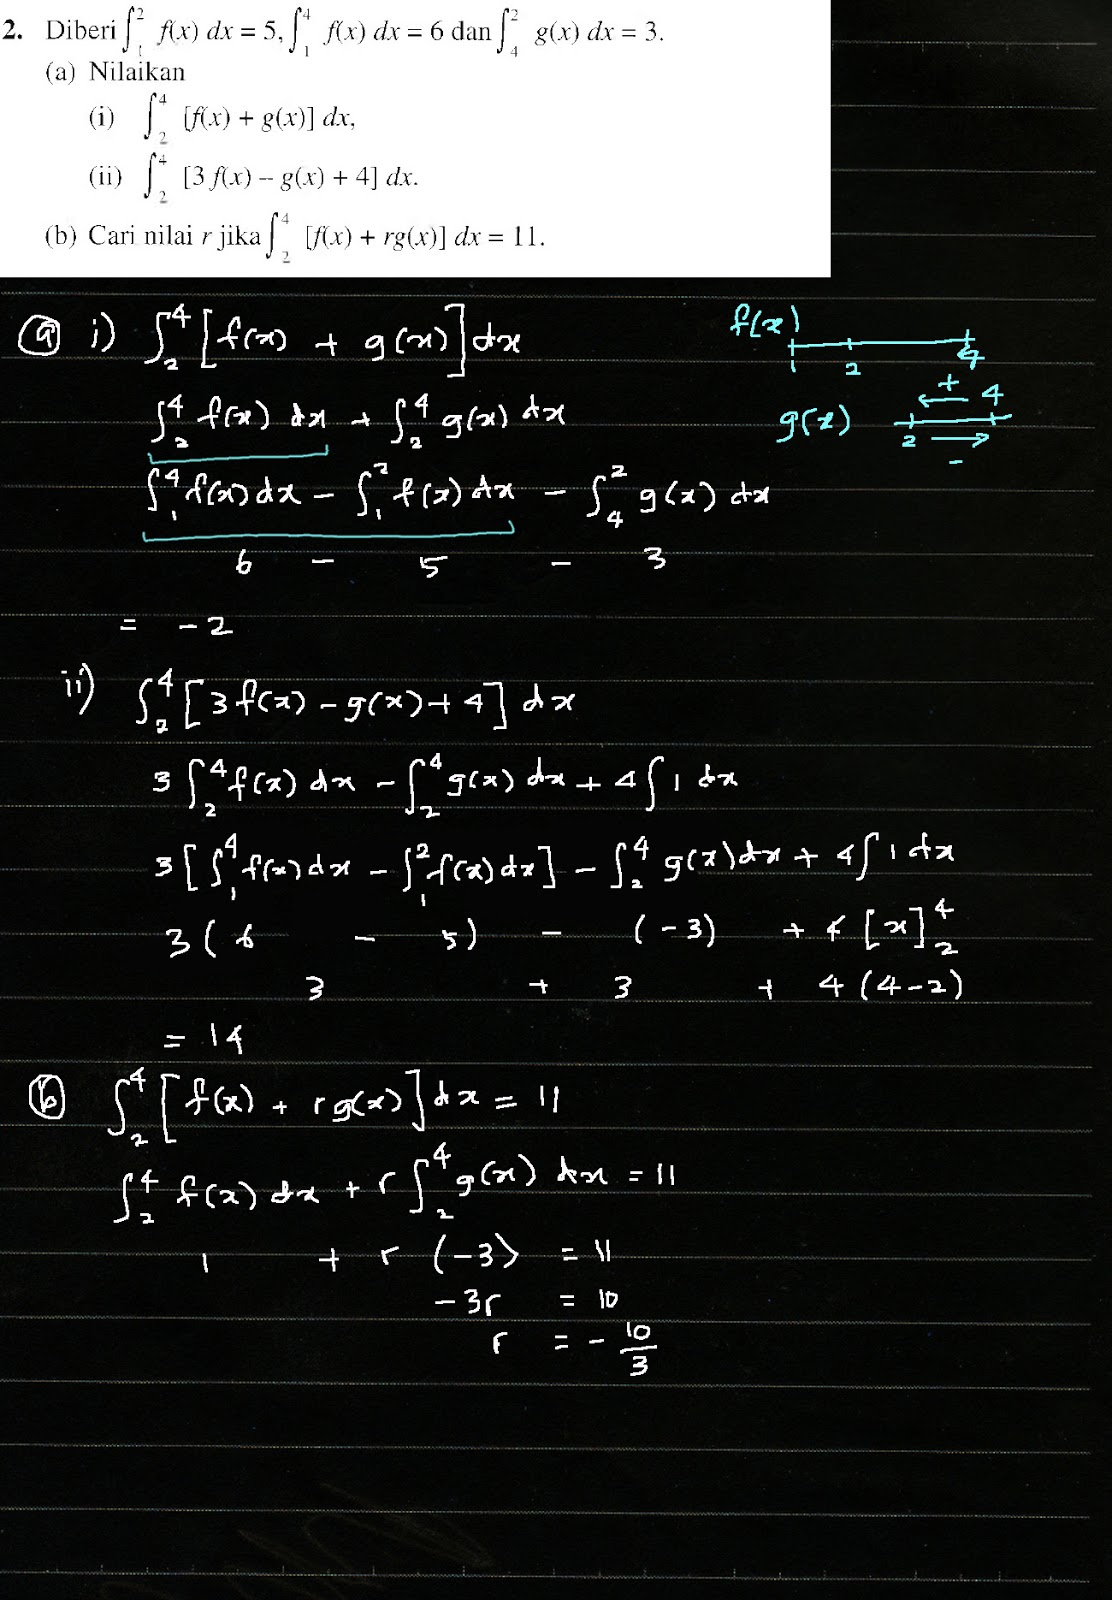 2. Diberi ∫₁² f(x) dx = 5, ∫₁⁴ f(x) dx = 6 dan ∫₄² g(x) dx = 3.
(a) Nilaikan
(i) ∫₂⁴ [f(x) + g(x)] dx,
(ii) ∫₂⁴ [3 f(x) – g(x) + 4] dx.
(b) Cari nilai r jika ∫₂⁴ [f(x) + rg(x)] dx = 11.
ⓐ i) ∫₂⁴ [f(x) + g(x)] dx
f(x) 1 2 4
∫₂⁴ f(x) dx + ∫₂⁴ g(x) dx
g(x) 2 + 4 -
∫₁⁴ f(x) dx - ∫₁² f(x) dx - ∫₄² g(x) dx
6 - 5 - 3
= -2
ii) ∫₂⁴ [3f(x) - g(x) + 4] dx
3 ∫₂⁴ f(x) dx - ∫₂⁴ g(x) dx + 4 ∫ 1 dx
3 [∫₁⁴ f(x) dx - ∫₁² f(x) dx] - ∫₂⁴ g(x) dx + 4 ∫ 1 dx
3 (6 - 5) - (-3) + 4 [x]₂⁴
3 + 3 + 4 (4-2)
= 14
ⓑ ∫₂⁴ [f(x) + rg(x)] dx = 11
∫₂⁴ f(x) dx + r ∫₂⁴ g(x) dx = 11
1 + r (-3) = 11
-3r = 10
r = - 10/3